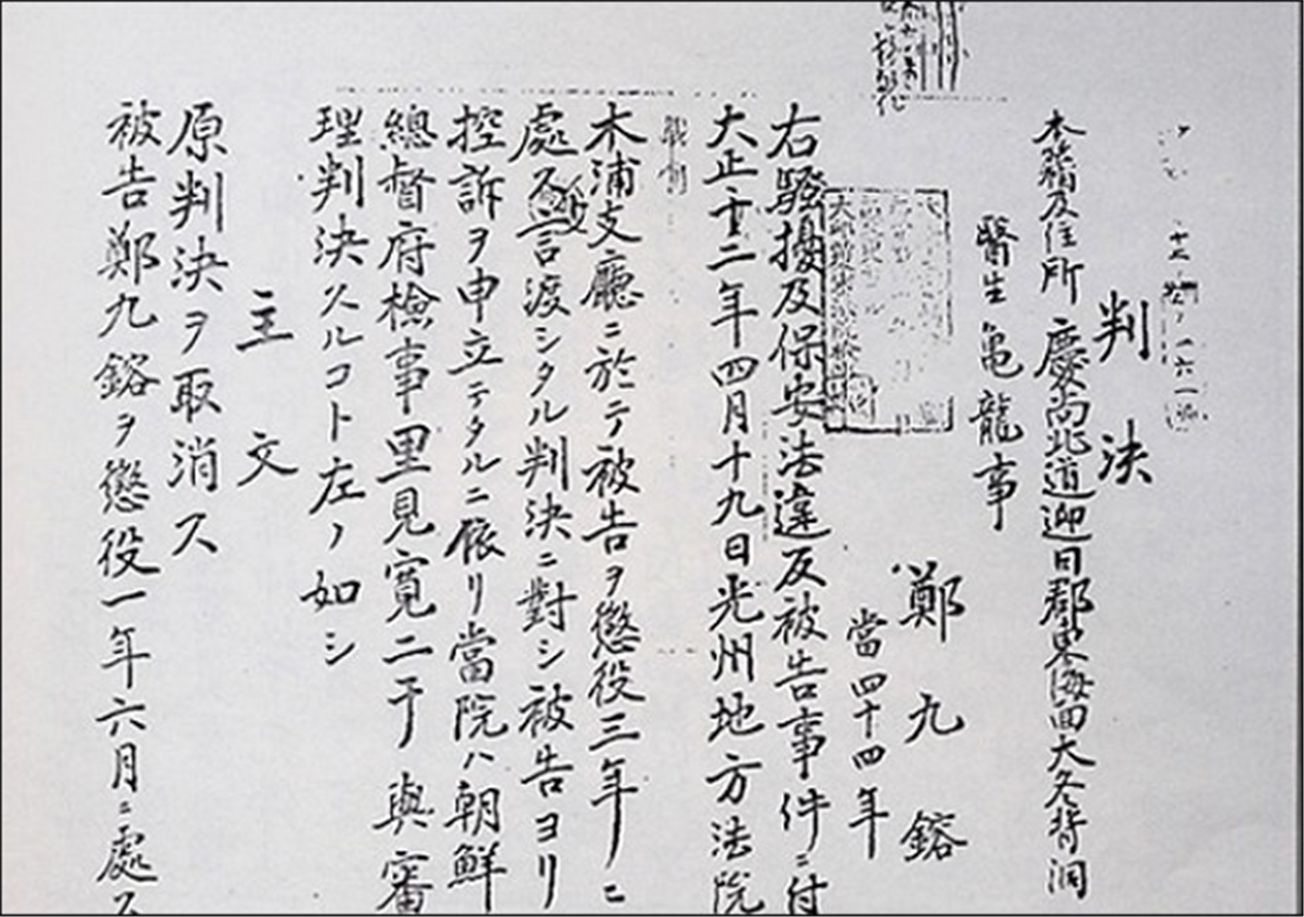 判決
本籍及住所 慶尚北道迎日郡東海面大冬背洞
醫生亀龍事
鄭九鎔
當四十四年
右騷擾及保安法違反被告事件ニ付
大正十二年四月十九日光州地方法院
木浦支廳ニ於テ被告ヲ懲役三年ニ
處ス言渡シタル判決ニ對シ被告ヨリ
控訴ヲ申立テタルニ依リ當院ハ朝鮮
總督府檢事里見寛二干與審
理判決スルコト左ノ如シ
主文
原判決ヲ取消ス
被告鄭九鎔ヲ懲役一年六月ニ處ス